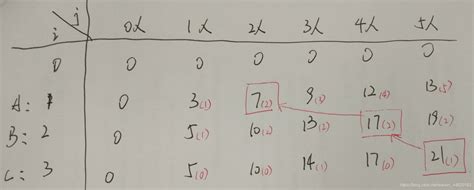 j
i 0人 1人 2人 3人 4人 5人
0 0 0 0 0 0 0
A: 1 0 3(1) 7(2) 9(3) 12(4) 13(5)
B: 2 0 5(1) 10(2) 13(2) 17(2) 19(2)
C: 3 0 5(0) 10(0) 14(1) 17(0) 21(1)